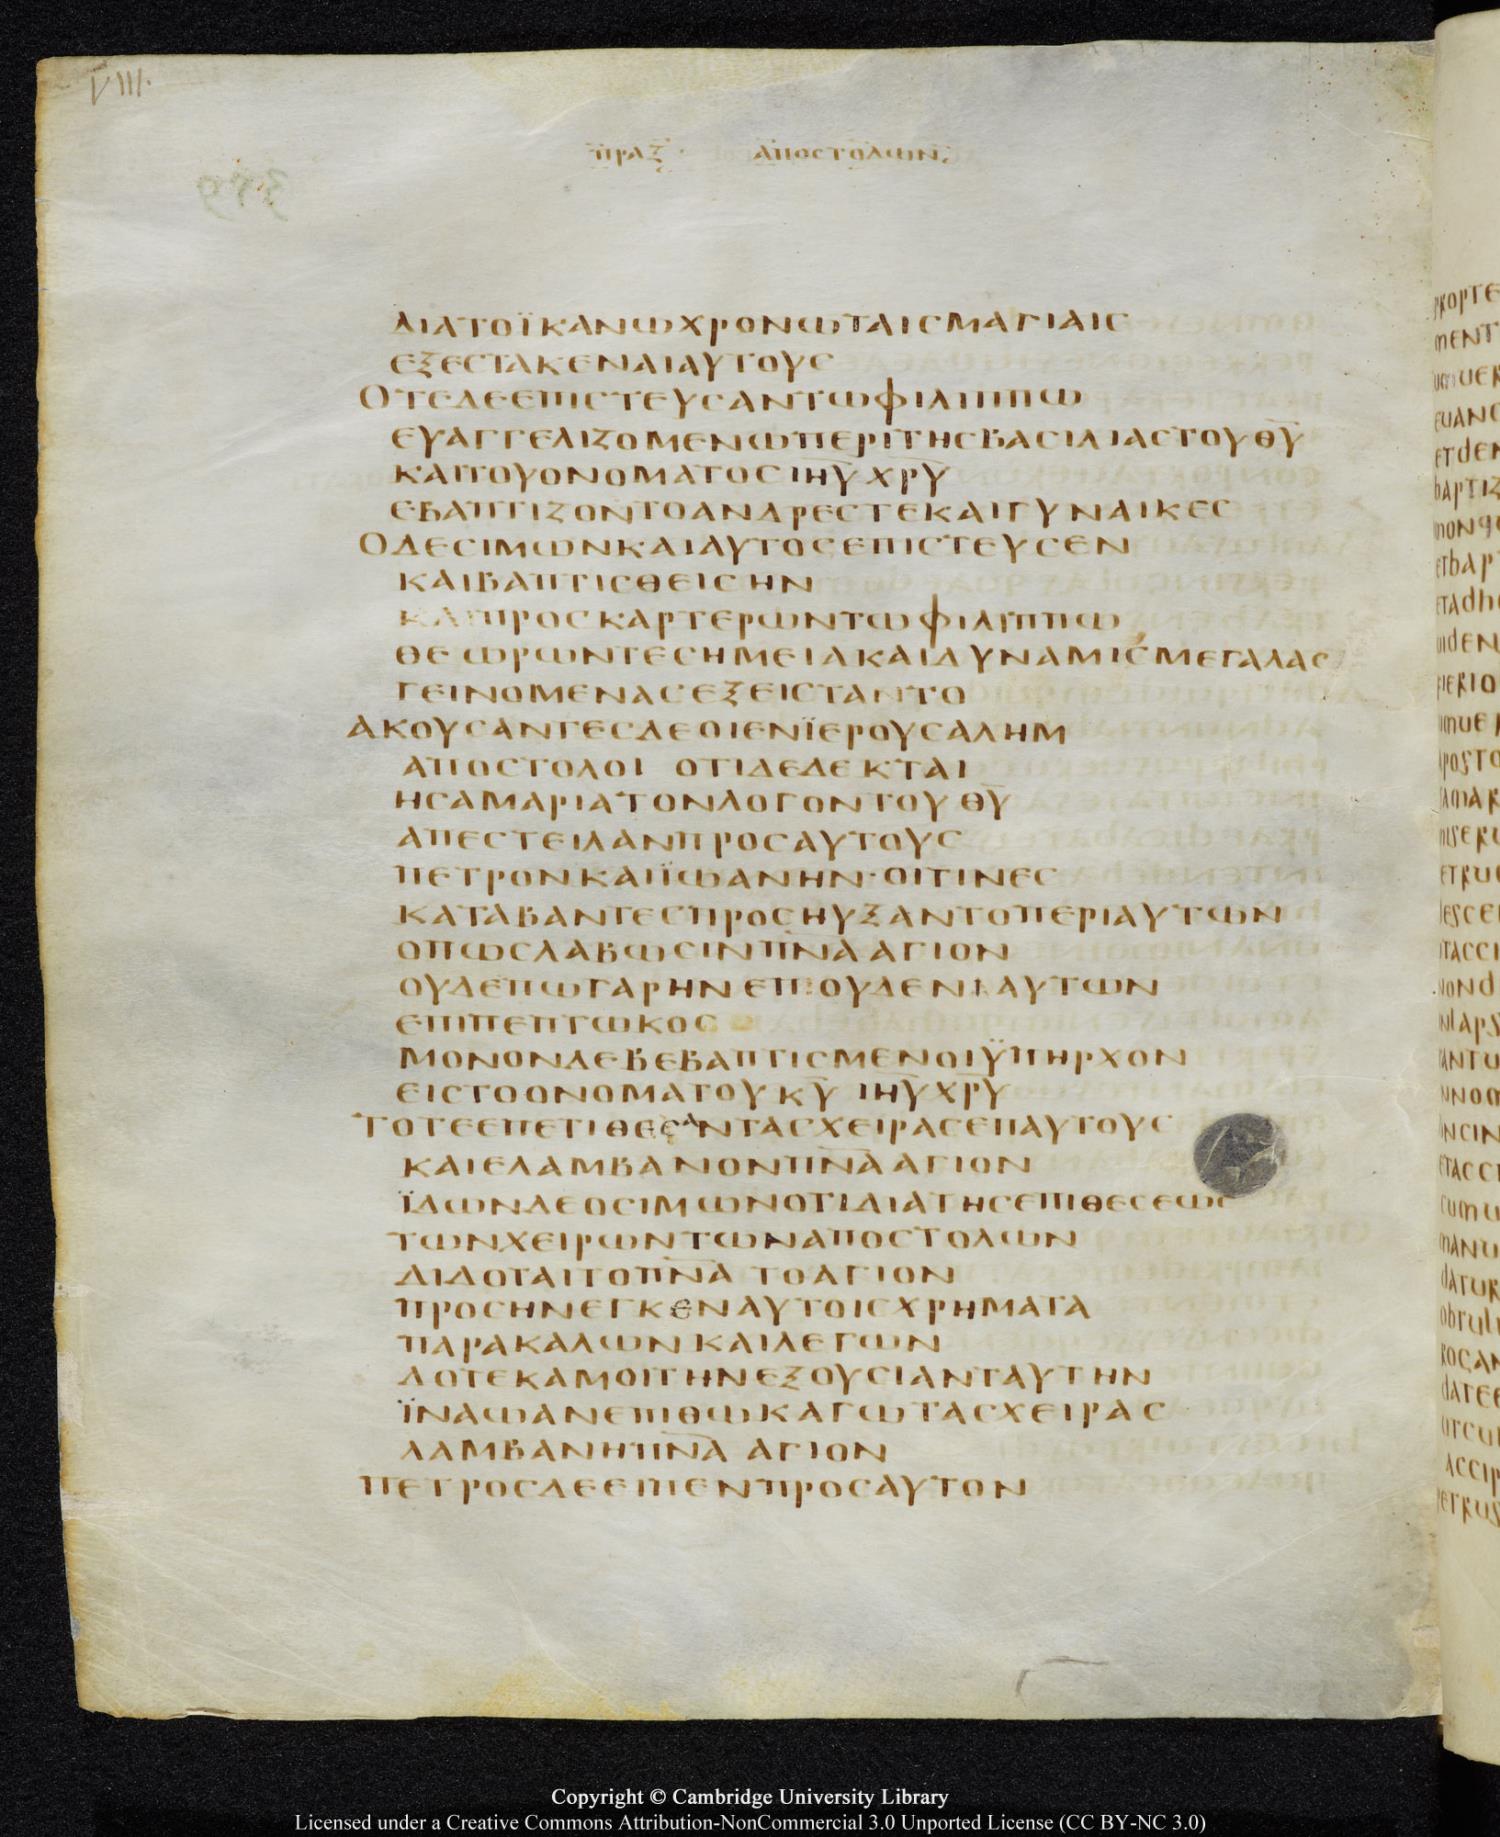 VIII.
ΠΡΑΞ · ΑΠΟСΤΟΛΩΝ
389
ΔΙΑΤΟΪΚΑΝΩΧΡΟΝΩΤΑΙСΜΑΓΙΑΙС
ΕΞΕСΤΑΚΕΝΑΙΑΥΤΟΥС
ΟΤΕΔΕΕΠΙСΤΕΥСΑΝΤΩΦΙΛΙΠΠΩ
ΕΥΑΓΓΕΛΙΖΟΜΕΝΩΠΕΡΙΤΗСΒΑСΙΛΙΑСΤΟΥΘ̅Υ̅
ΚΑΙΤΟΥΟΝΟΜΑΤΟСΙ̅Η̅Υ̅Χ̅Ρ̅Υ̅
ΕΒΑΠΤΙΖΟΝΤΟΑΝΔΡΕСΤΕΚΑΙΓΥΝΑΙΚΕС
ΟΔΕСΙΜΩΝΚΑΙΑΥΤΟСΕΠΙСΤΕΥСΕΝ
ΚΑΙΒΑΠΤΙСΘΕΙСΗΝ
ΚΑΙΠΡΟСΚΑΡΤΕΡΩΝΤΩΦΙΛΙΠΠΩ
ΘΕΩΡΩΝΤΕСΗΜΕΙΑΚΑΙΔΥΝΑΜΙСΜΕΓΑΛΑС
ΓΕΙΝΟΜΕΝΑСΕΞΕΙСΤΑΝΤΟ
ΑΚΟΥСΑΝΤΕСΔΕΟΙΕΝΪΕΡΟΥСΑΛΗΜ
ΑΠΟСΤΟΛΟΙ ΟΤΙΔΕΔΕΚΤΑΙ
ΗСΑΜΑΡΙΑΤΟΝΛΟΓΟΝΤΟΥΘ̅Υ̅
ΑΠΕСΤΕΙΛΑΝΠΡΟСΑΥΤΟΥС
ΠΕΤΡΟΝΚΑΙΪΩΑΝΗΝ·ΟΙΤΙΝΕС
ΚΑΤΑΒΑΝΤΕСΠΡΟСΗΥΞΑΝΤΟΠΕΡΙΑΥΤΩΝ
ΟΠΩСΛΑΒΩСΙΝΠ̅Ν̅Α̅ΑΓΙΟΝ
ΟΥΔΕΠΩΓΑΡΗΝΕΠΙΟΥΔΕΝΙΑΥΤΩΝ
ΕΠΙΠΕΠΤΩΚΟС
ΜΟΝΟΝΔΕΒΕΒΑΠΤΙСΜΕΝΟΙΫΠΗΡΧΟΝ
ΕΙСΤΟΟΝΟΜΑΤΟΥΚ̅Υ̅ Ι̅Η̅Υ̅Χ̅Ρ̅Υ̅
ΤΟΤΕΕΠΕΤΙΘΕСΑΝΤΑСΧΕΙΡΑСΕΠΑΥΤΟΥС
ΚΑΙΕΛΑΜΒΑΝΟΝΠ̅Ν̅Α̅ΑΓΙΟΝ
ΪΔΩΝΔΕΟСΙΜΩΝΟΤΙΔΙΑΤΗСΕΠΙΘΕСΕΩС
ΤΩΝΧΕΙΡΩΝΤΩΝΑΠΟСΤΟΛΩΝ
ΔΙΔΟΤΑΙΤΟΠ̅Ν̅Α̅ ΤΟΑΓΙΟΝ
ΠΡΟСΗΝΕΓΚΕΝΑΥΤΟΙСΧΡΗΜΑΤΑ
ΠΑΡΑΚΑΛΩΝΚΑΙΛΕΓΩΝ
ΔΟΤΕΚΑΜΟΙΤΗΝΕΞΟΥСΙΑΝΤΑΥΤΗΝ
ΪΝΑΩΑΝΕΠΙΘΩΚΑΓΩΤΑСΧΕΙΡΑС
ΛΑΜΒΑΝΗΠ̅Ν̅Α̅ ΑΓΙΟΝ
ΠΕΤΡΟСΔΕΕΙΠΕΝΠΡΟСΑΥΤΟΝ
Copyright © Cambridge University Library
Licensed under a Creative Commons Attribution-NonCommercial 3.0 Unported License (CC BY-NC 3.0)